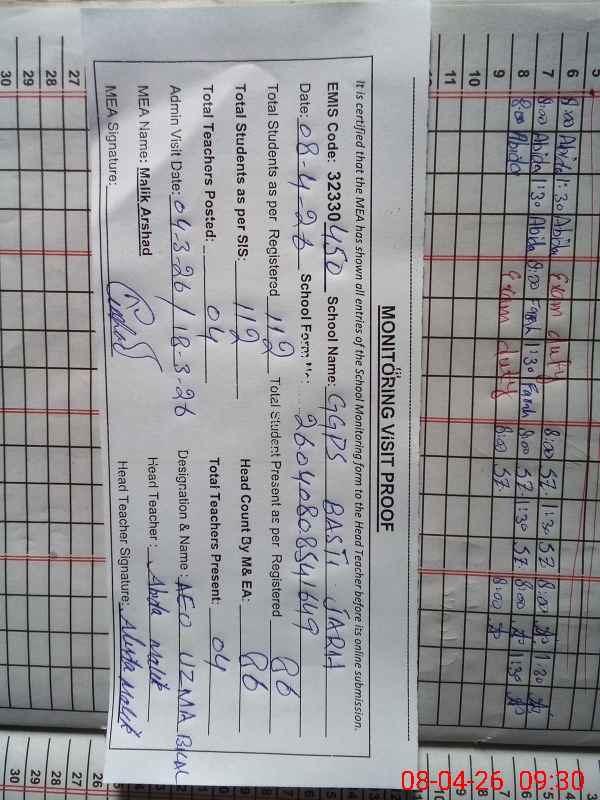 MONITORING VISIT PROOF
It is certified that the MEA has shown all entries of the School Monitoring form to the Head Teacher before its online submission.
EMIS Code: 32330450 School Name: GGPS BASTI JARH
Date: 08-4-26 School Form No: 26040808541649
Total Students as per Registered 112 Total Student Present as per Registered 86
Total Students as per SIS: 112 Head Count By M& EA: 86
Total Teachers Posted: 04 Total Teachers Present: 04
Admin Visit Date: 04-3-26 / 18-3-26 Designation & Name: AEO UZMA
MEA Name: Malik Arshad Head Teacher: Abida Malik
MEA Signature: Head Teacher Signature: Abida Malik
5
6 8:00 Abida 1:30 Abida Exam duty 8:00 SZ 1:30 SZ 8:00 1:30
7 8:00 Abida 1:30 Abida 8:00 Farah 1:30 Farah 8:00 SZ 1:30 SZ 8:00 1:30
8 8:00 Abida Exam duty 8:00 SZ 8:00
9
10
11
27
28
29
30
26
27
28
29
30
08-04-26 09:30